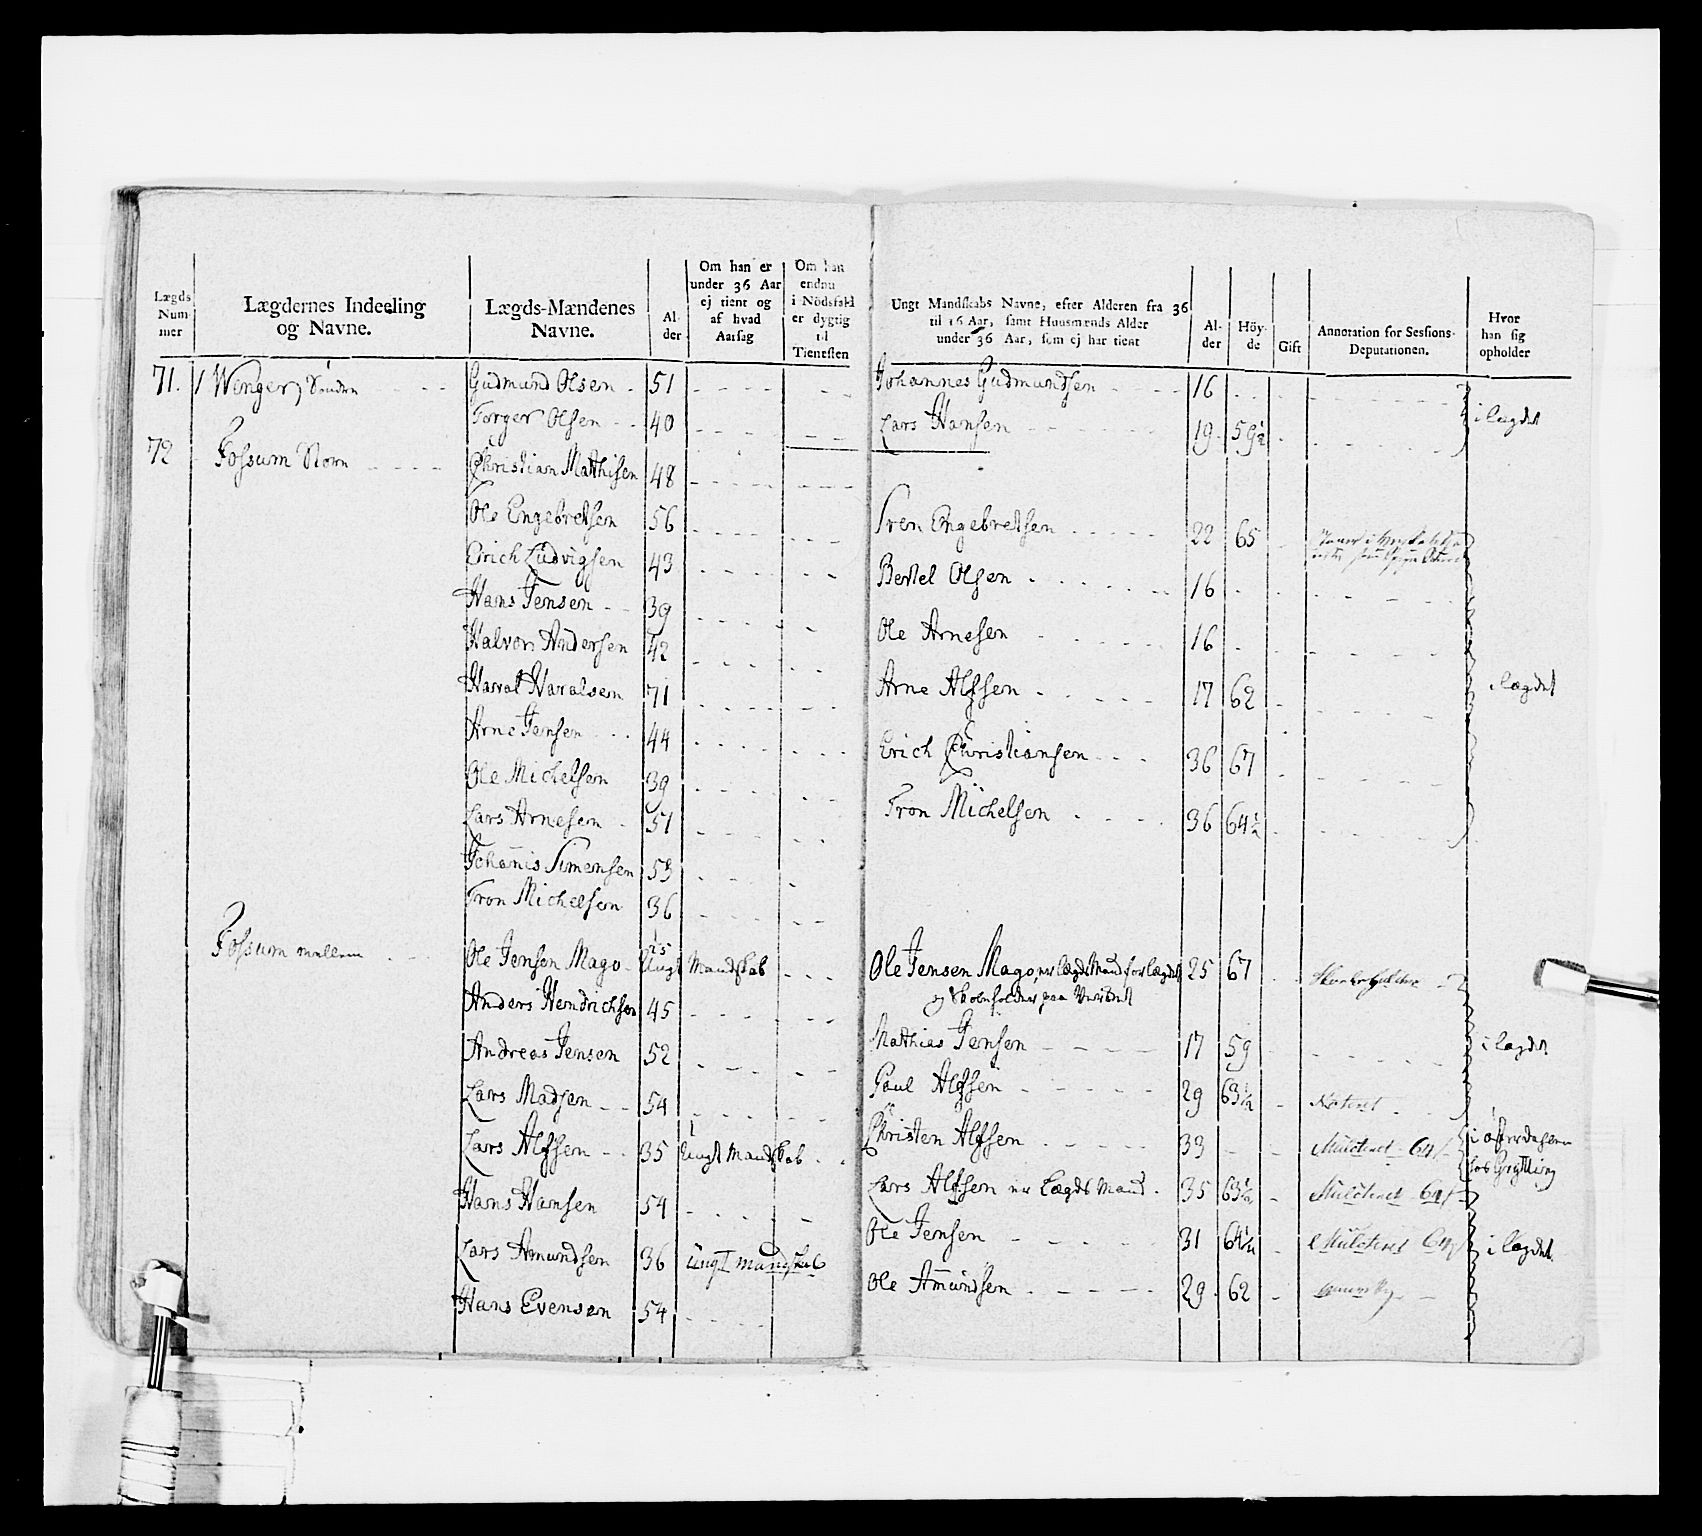 Lægds Num- mer
Lægdernes Indeeling og Navne.
Lægds-Mændenes Navne.
Al- der
Om han er under 36 Aar ej tient og af hvad Aarsag
Om han endnu i Nödsfald er dygtig til Tienesten
Ungt Mandskabs Navne, efter Alderen fra 36 til 16 Aar, samt Huusmænds Alder under 36 Aar, som ej har tient
Al- der
Höy- de
Gift
Annotation for Sessions- Deputationen.
Hvor han sig opholder
71. Wenger Söndre Gudmund Olsen 51 Johannes Gudmundsen 16
Torger Olsen 40 Lars Hansen 19 59½ i lægdet
72 Fossum Store Christian Mathisen 48
Ole Engebretsen 56 Sven Engebretsen 22 65
Erich Ludvigsen 43 Bertel Olsen 16
Hans Jensen 39
Halvor Andersen 42 Ole Arnesen 16
Haral Haralsen 71 Arne Alfsen 17 62 i lægdet
Arne Jensen 44
Erich Christiansen 36 67
Ole Michelsen 39
Lars Arnesen 51 Tron Michelsen 36 64½
Johanis Simensen 53
Tron Michelsen 36
Fossum mellem Ole Jensen Mago 25 Ungt Mandskab Ole Jensen Mago, er lægds Mand for lægdet 25 67
Anders Hendrichsen 45
Andreas Jensen 52 Mathias Jensen 17 59 i lægdet
Lars Madsen 54 Paul Alfsen 29 63½ Noteret
Lars Alfsen 35 Ungt Mandskab Christen Alfsen 33 Mulcteret 64 i österdalen
hos
Hans Hansen 54 Lars Alfsen er Lægds Mand 35 63½ Mulcteret 64
Ole Jensen 31 Mulcteret i lægdet
Lars Amundsen 36 ungt mandskab
Ole Amundsen 29 62
Hans Evensen 54